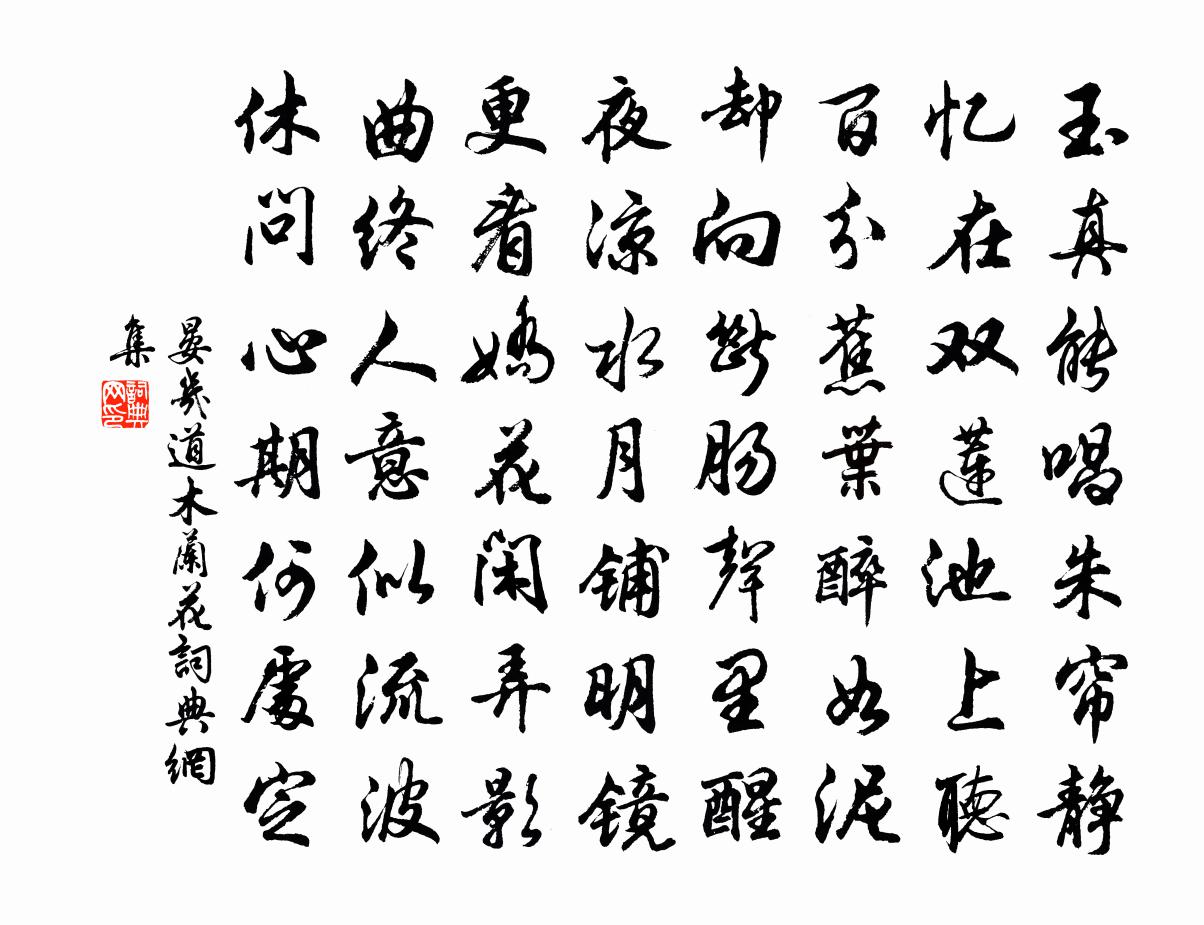 玉真能唱朱帘静
忆在双莲池上聽
百分蕉葉醉如泥
却向断肠聲里醒
夜凉水月铺明镜
更看嬌花闲弄影
曲终人意似流波
休问心期何處定
晏幾道木蘭花詞典網
集
詞典
网印